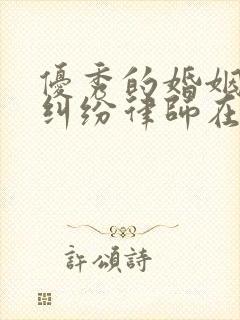 優秀的婚姻
糾紛律師在
許頌詩